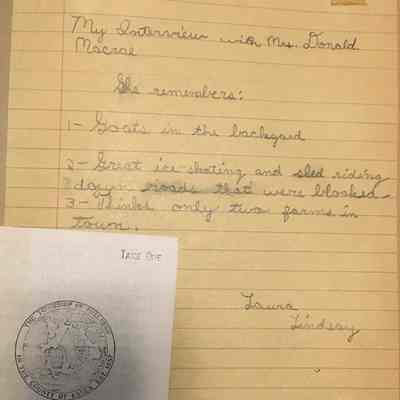 My Interview with Mrs. Donald
Macrae
She remembers:
1- Goats in the backyard
2- Great ice-skating and sled riding
down roads that were blocked
3- Thinks only two farms in
town.
Laura
Lindsay
TAKE ONE
THE TOWNSHIP OF
IN THE COUNTY OF ESSEX